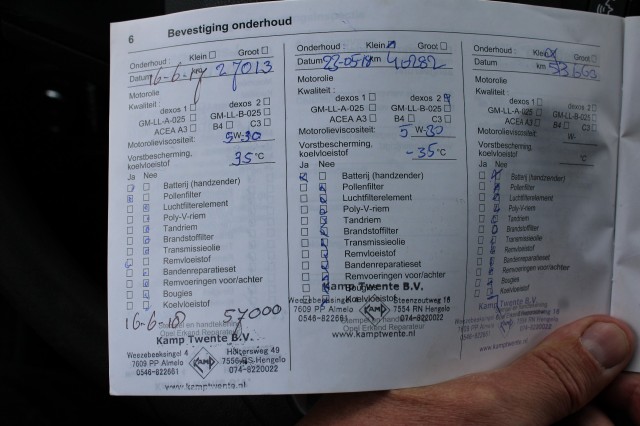 6 Bevestiging onderhoud
Onderhoud : Klein Groot
Datum 27013
Motorolie
Kwaliteit :
dexos 1 dexos 2
GM-LL-A-025 GM-LL-B-025
ACEA A3 B4 C3
Motorolieviscositeit: 5W-30
Vorstbescherming,
koelvloeistof 35 °C
Ja Nee
Batterij (handzender)
Pollenfilter
Luchtfilterelement
Poly-V-riem
Tandriem
Brandstoffilter
Transmissieolie
Remvloeistof
Bandenreparatieset
Remvoeringen voor/achter
Bougies
Koelvloeistof
16-6-18 57000
Opel Erkend Reparateur
Kamp Twente B.V.
Weezebeeksingel 4 Hölterweg 49
7609 PP Almelo KAMP 7556 RS Hengelo
0546-822661 074-8220022
www.kamptwente.nl
Onderhoud : Klein Groot
Datum 23-05-18 km 40282
Motorolie
Kwaliteit :
dexos 1 dexos 2
GM-LL-A-025 GM-LL-B-025
ACEA A3 B4 C3
Motorolieviscositeit: 5W-30
Vorstbescherming,
koelvloeistof -35 °C
Ja Nee
Batterij (handzender)
Pollenfilter
Luchtfilterelement
Poly-V-riem
Tandriem
Brandstoffilter
Transmissieolie
Remvloeistof
Bandenreparatieset
Remvoeringen voor/achter
Bougies
Koelvloeistof
Kamp Twente B.V.
Weezebeeksingel 4 Steenzoutweg 16
7609 PP Almelo KAMP 7554 RN Hengelo
0546-822661 074-8220022
www.kamptwente.nl
Onderhoud : Klein Groot
Datum km 53663
Motorolie
Kwaliteit :
dexos 1 dexos 2
GM-LL-A-025 GM-LL-B-025
ACEA A3 B4 C3
Motorolieviscositeit: W-
Vorstbescherming,
koelvloeistof °C
Ja Nee
Batterij (handzender)
Pollenfilter
Luchtfilterelement
Poly-V-riem
Tandriem
Brandstoffilter
Transmissieolie
Remvloeistof
Bandenreparatieset
Remvoeringen voor/achter
Bougies
Koelvloeistof
Kamp Twente B.V.